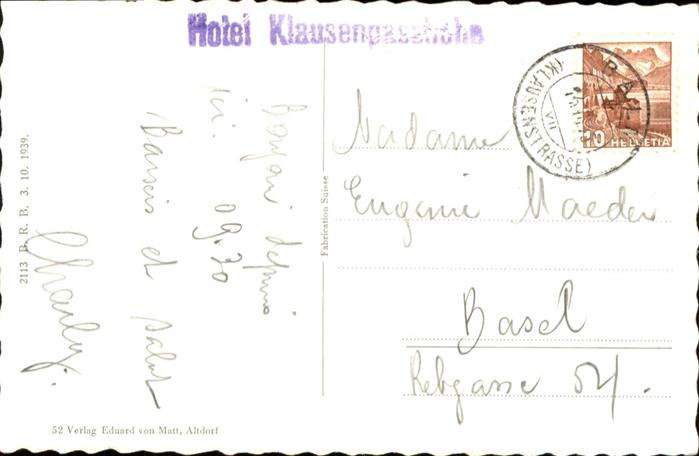 Hotel Klausenpasshöhe
Bonjour depuis
ici. 09.30
Baisers et salut
Charly.
2113 B. R. B. 3. 10. 1939.
Fabrication Suisse
52 Verlag Eduard von Matt, Altdorf
(KLAUSENSTRASSE)
VII
10
HELVETIA
Madame
Eugenie Maeder
Basel
Rebgasse 54.